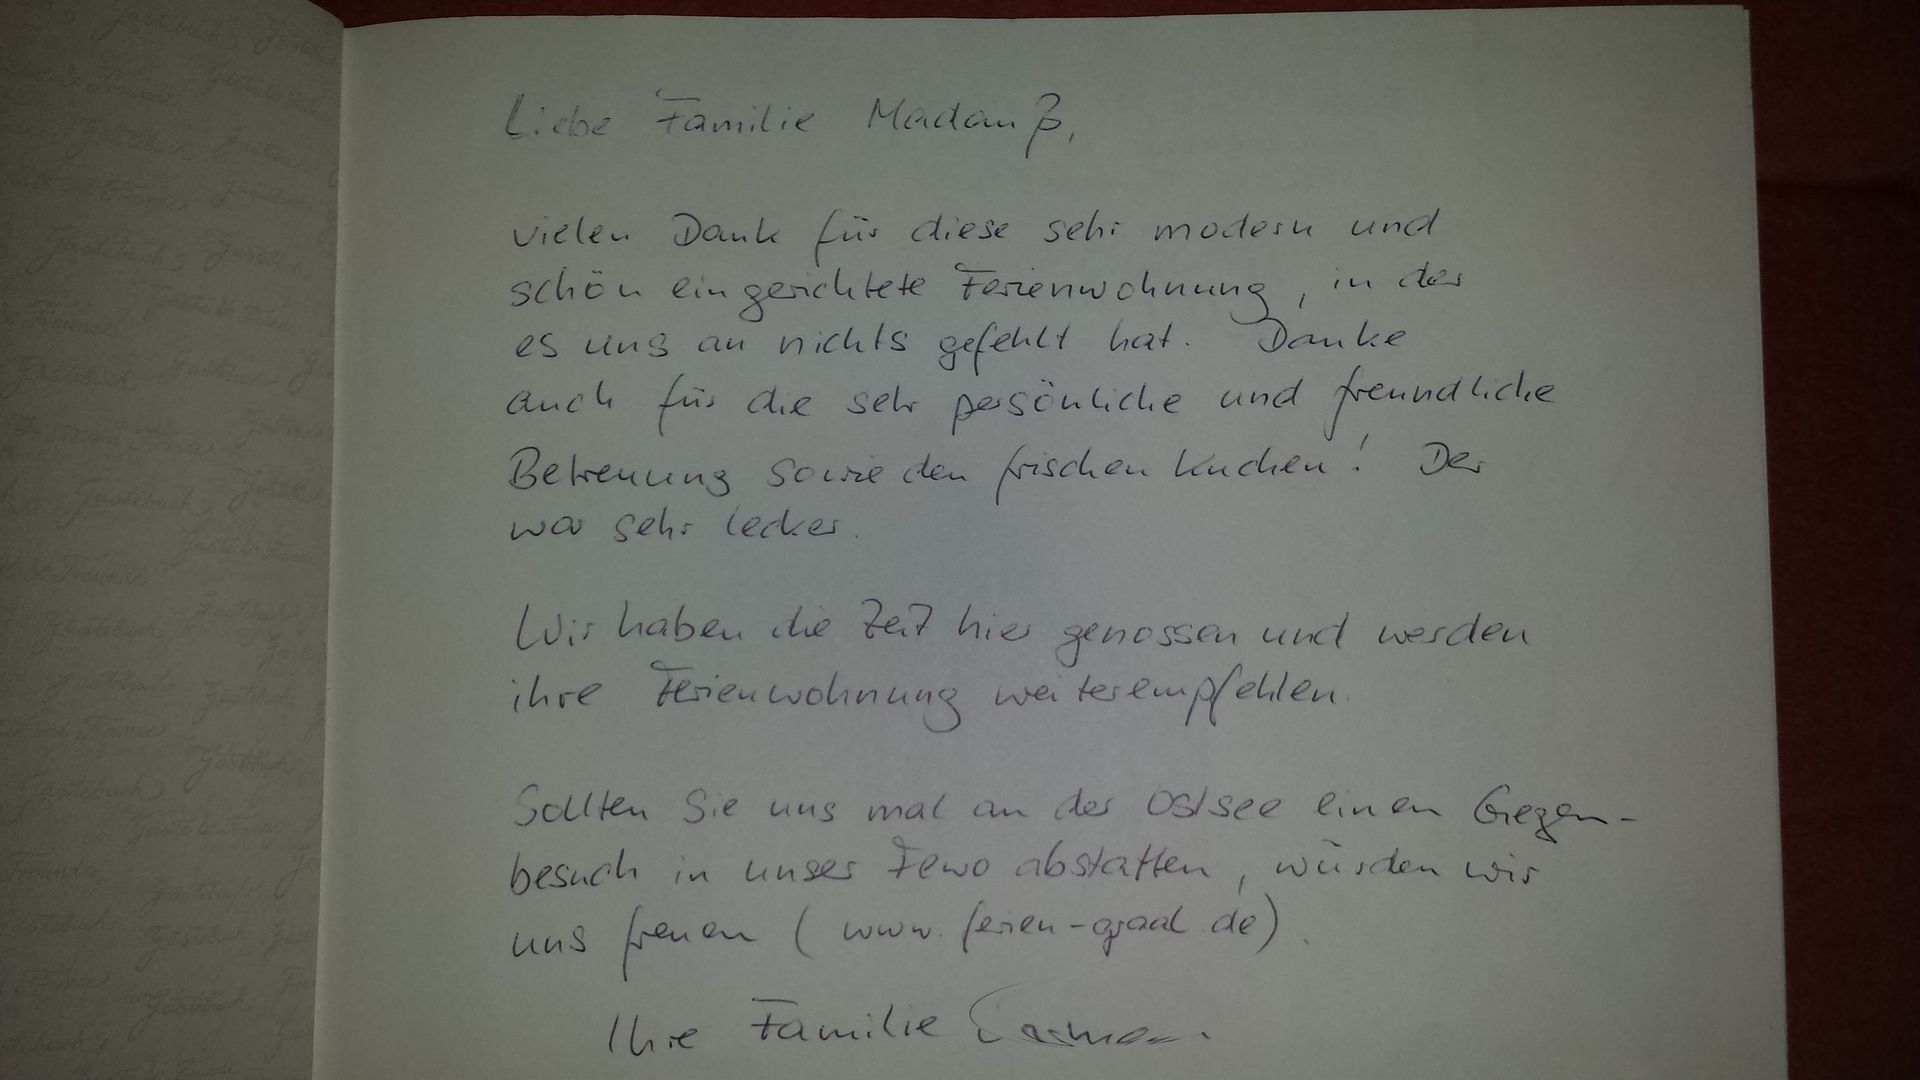 Liebe Familie Madauß,
vielen Dank für diese sehr modern und
schön eingerichtete Ferienwohnung, in der
es uns an nichts gefehlt hat. Danke
auch für die sehr persönliche und freundliche
Betreuung sowie den frischen Kuchen! Der
war sehr lecker.
Wir haben die Zeit hier genossen und werden
ihre Ferienwohnung weiterempfehlen.
Sollten Sie uns mal an der Ostsee einen Gegen-
besuch in unser Fewo abstatten, würden wir
uns freuen (www.ferien-graal.de).
Ihre Familie